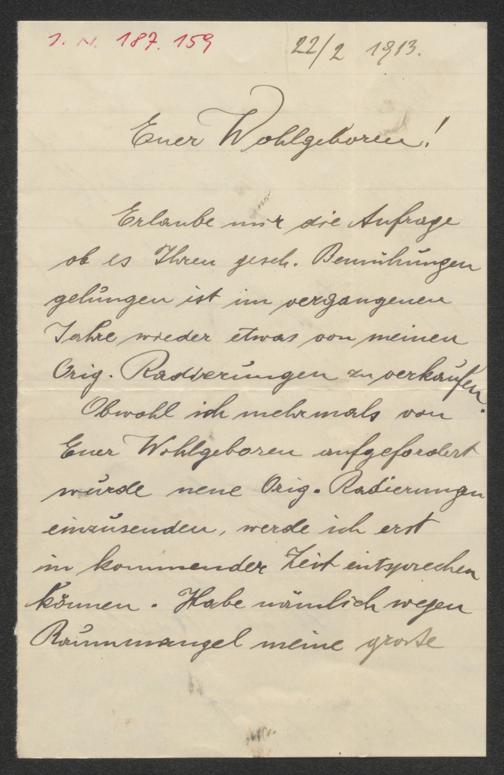 J. N. 187.159
22/2 1913.
Euer Wohlgeboren!
Erlaube mir die Anfrage
ob es Ihren gesch. Bemühungen
gelungen ist im vergangenen
Jahre wieder etwas von meinen
Orig. Radierungen zu verkaufen.
Obwohl ich mehrmals von
Euer Wohlgeboren aufgefordert
wurde neue Orig. Radierungen
einzusenden, werde ich erst
in kommender Zeit entsprechen
können. Habe nämlich wegen
Raummangel meine große